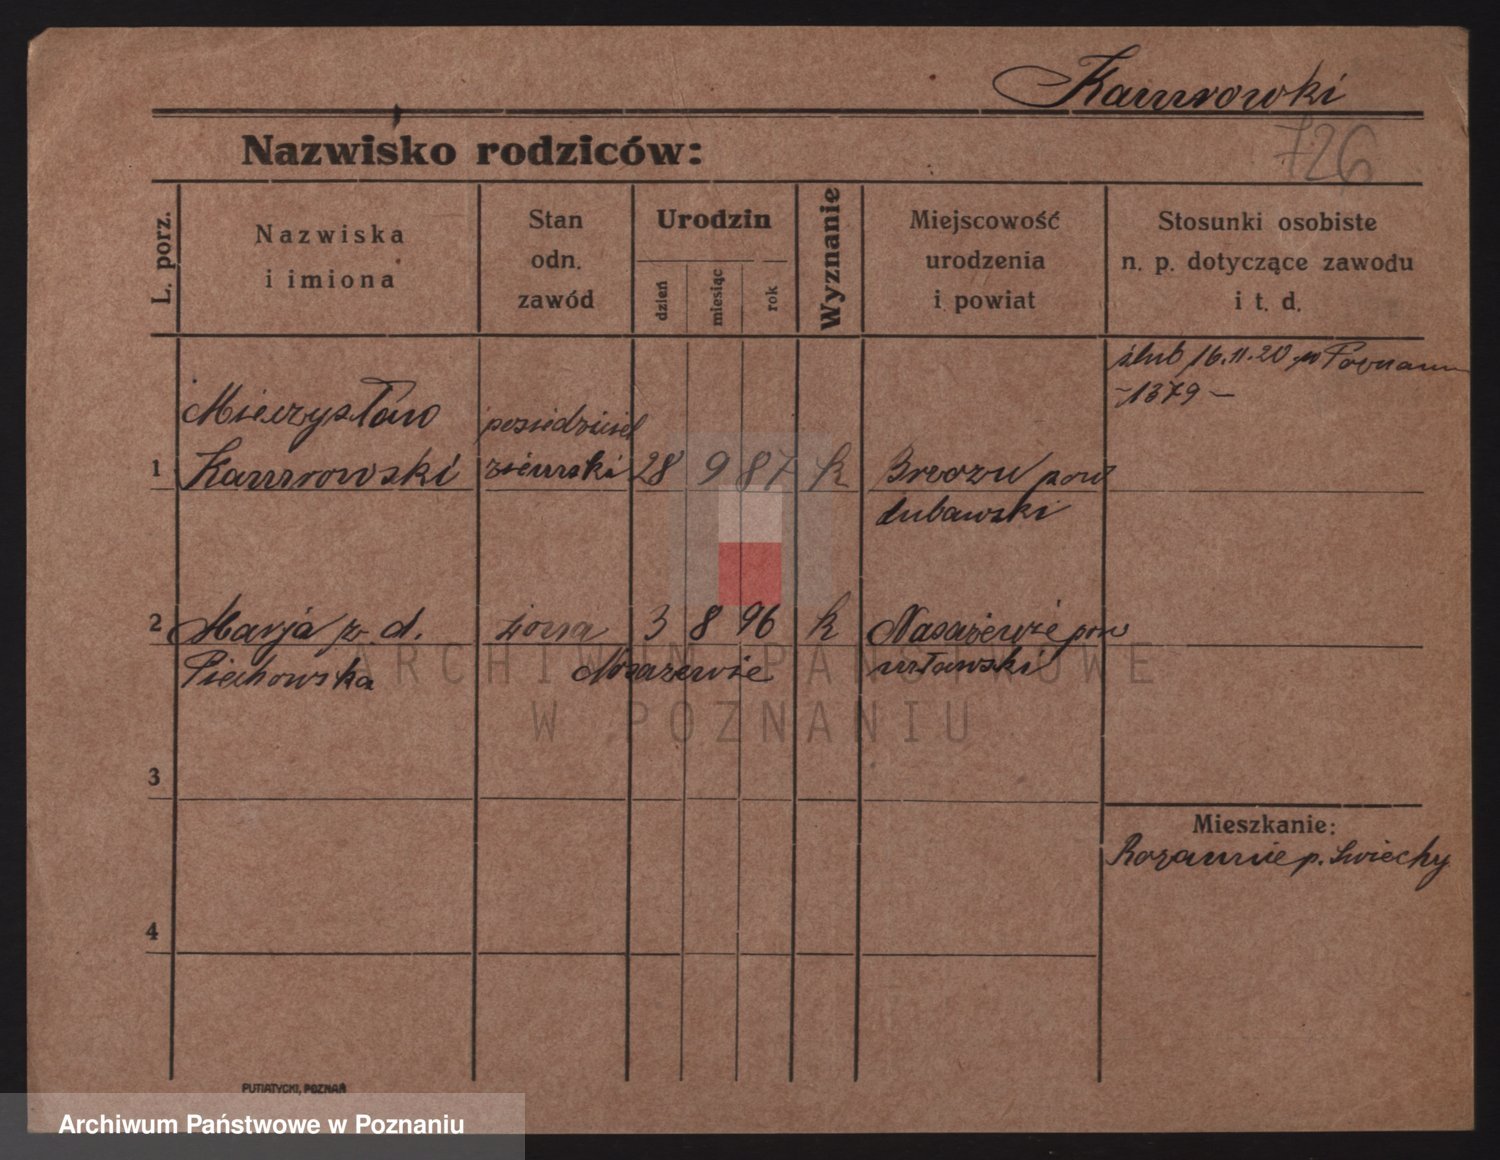 Kamrowki
726
Nazwisko rodziców:
L. porz.
Nazwiska
i imiona
Stan
odn.
zawód
Urodzin
dzień
miesiąc
rok
Wyznanie
Miejscowość
urodzenia
i powiat
Stosunki osobiste
n. p. dotyczące zawodu
i t. d.
ślub 16.11.20 w Poznaniu
-1379-
Mieczysław
posiedziciel
1 Kamrowski ziemski 28 9 87 k pow
lubawski
2 Marja z d. żona 3 8 96 k pow
Piechowska
3
Mieszkanie:
p.
4
PUTIATYCKI, POZNAŃ
ARCHIWUM PAŃSTWOWE
W POZNANIU
Archiwum Państwowe w Poznaniu